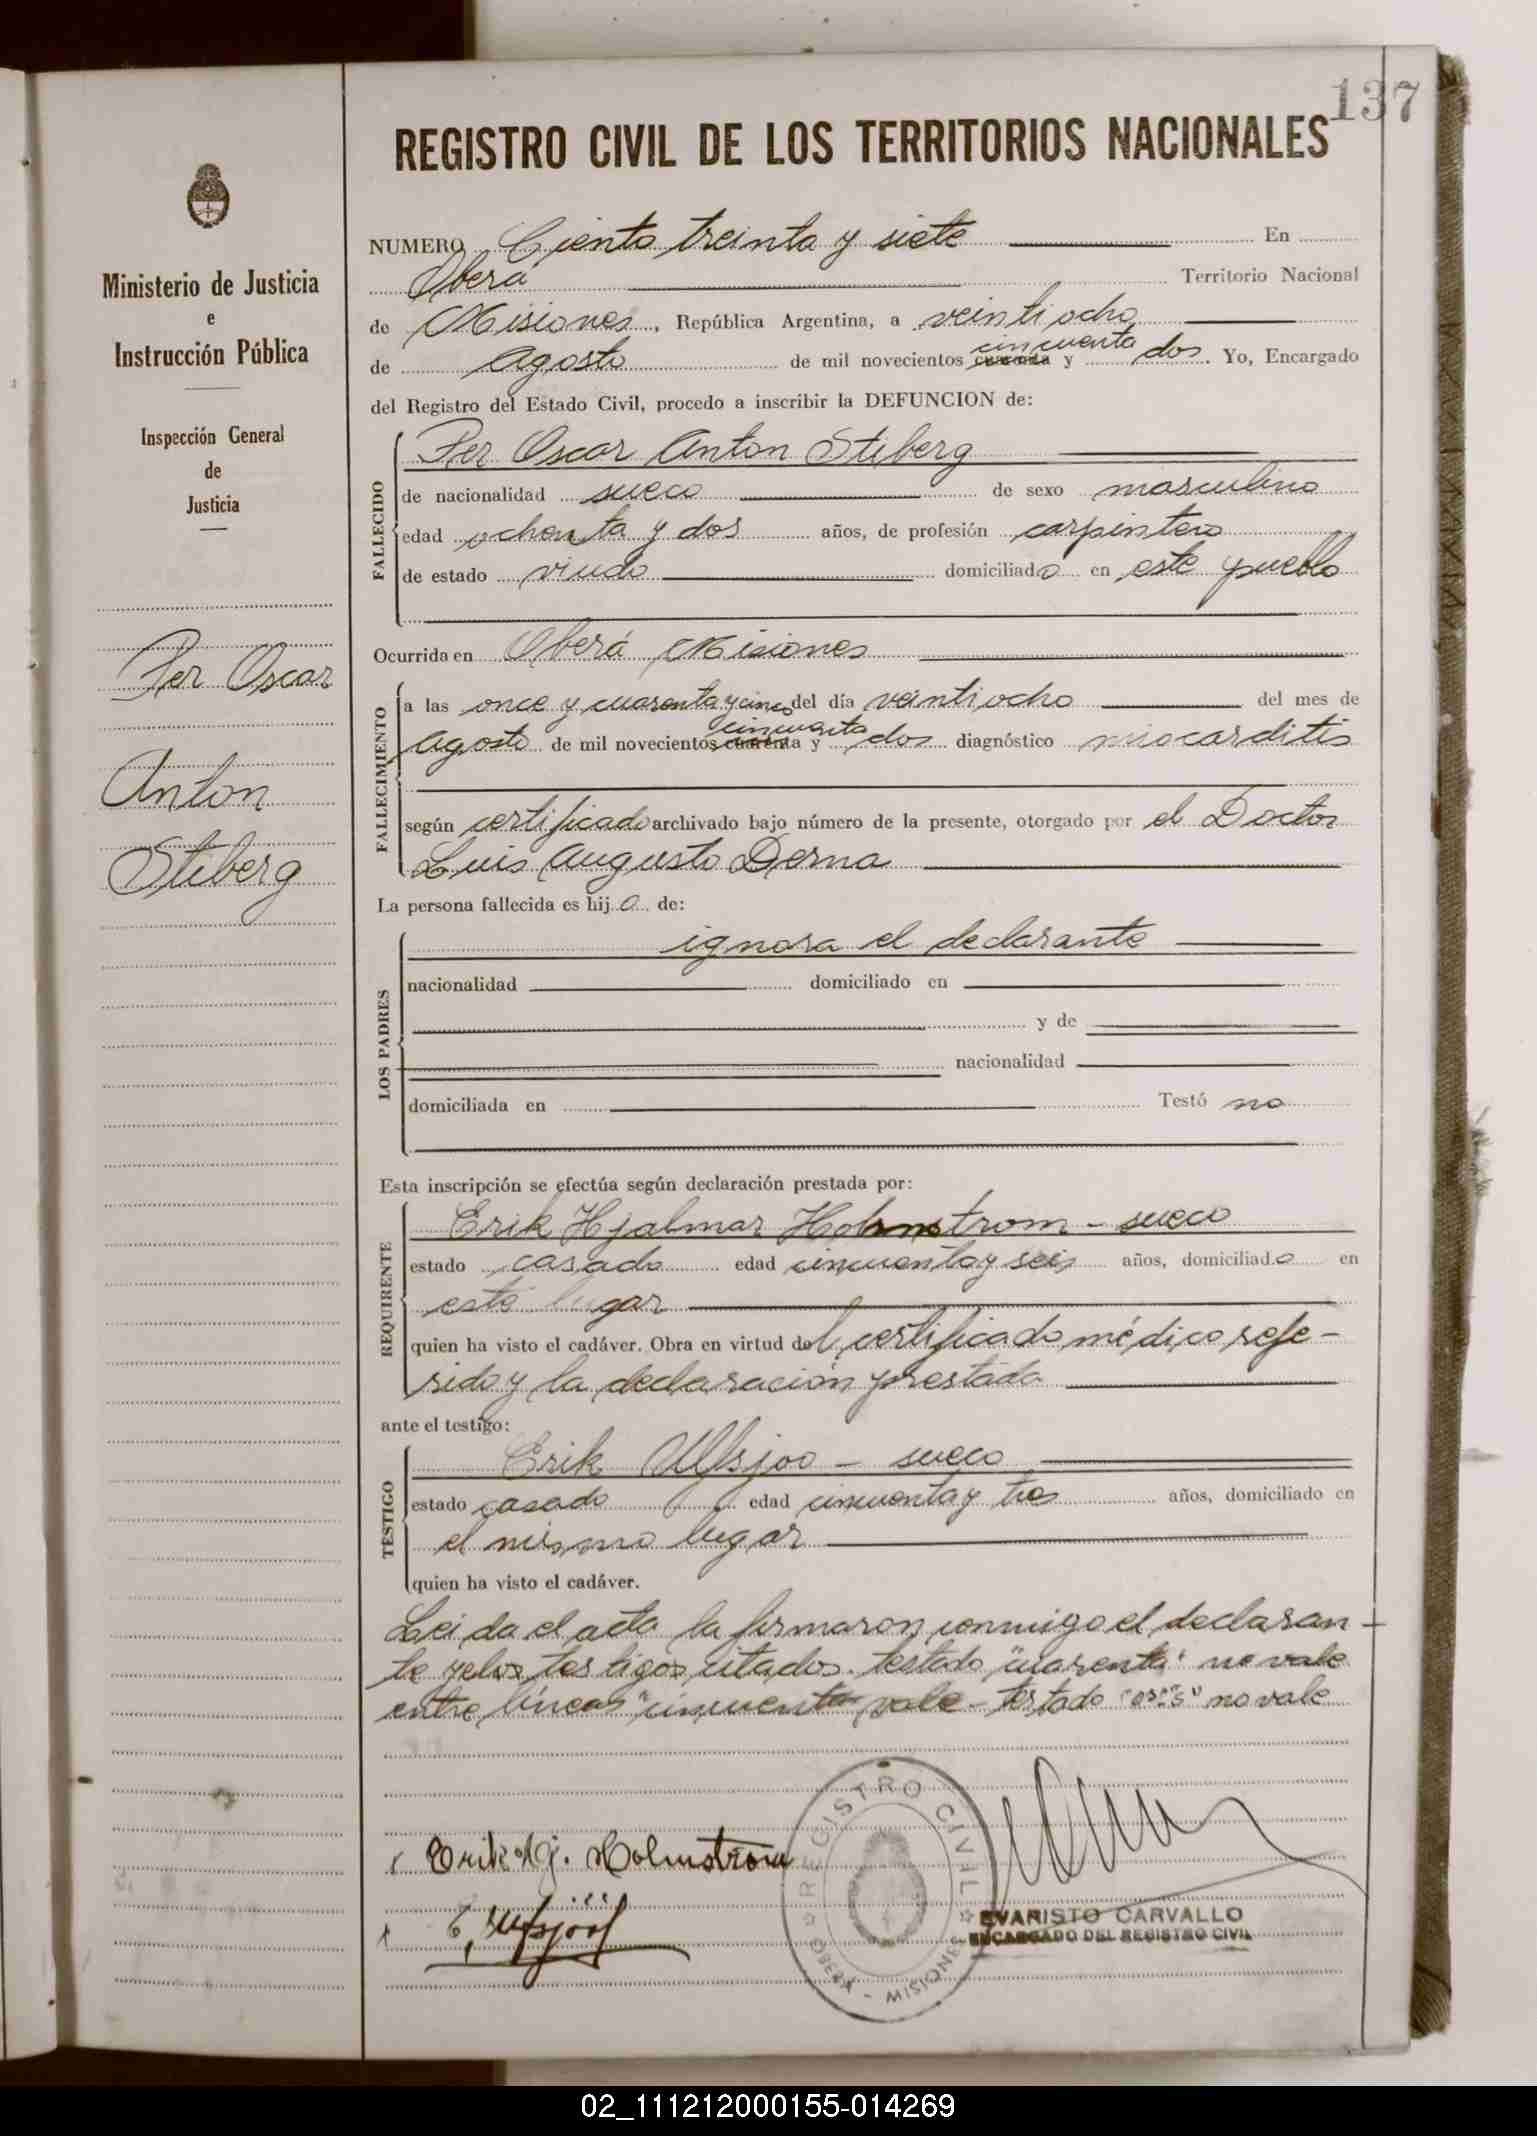 137
REGISTRO CIVIL DE LOS TERRITORIOS NACIONALES
Ministerio de Justicia
e
Instrucción Pública
Inspección General
de
Justicia
Per Oscar
Anton
Stiberg
NUMERO Ciento treinta y siete En
Oberá Territorio Nacional
de Misiones, República Argentina, a veintiocho
de Agosto de mil novecientos cuarenta cincuenta y dos. Yo, Encargado
del Registro del Estado Civil, procedo a inscribir la DEFUNCION de:
FALLECIDO
Per Oscar Anton Stiberg
de nacionalidad sueco de sexo masculino
edad ochenta y dos años, de profesión carpintero
de estado viudo domiciliado en este pueblo
Ocurrida en Oberá Misiones
FALLECIMIENTO
a las once y cuarenta y cinco del día veintiocho del mes de
Agosto de mil novecientos cuarenta cincuenta y dos diagnóstico miocarditis
según certificado archivado bajo número de la presente, otorgado por el Doctor
Luis Augusto Derna
La persona fallecida es hijo de:
LOS PADRES
ignora el declarante
nacionalidad domiciliado en
y de
nacionalidad
domiciliada en Testó no
Esta inscripción se efectúa según declaración prestada por:
REQUIRENTE
Erik Hjalmar Holmstrom - sueco
estado casado edad cincuenta y seis años, domiciliado en
este lugar
quien ha visto el cadáver. Obra en virtud del certificado médico refe-
rido y la declaración prestada
ante el testigo:
TESTIGO
Erik Ulfsjoo - sueco
estado casado edad cincuenta y tres años, domiciliado en
el mismo lugar
quien ha visto el cadáver.
Leida el acta la firmaron conmigo el declaran-
te y los testigos citados. testado "cuarenta" no vale
entre lineas "cincuenta" vale - testado no vale
Erik Hj. Holmstrom
E. Ulfsjöö
REGISTRO CIVIL
OBERA - MISIONES
EVARISTO CARVALLO
ENCARGADO DEL REGISTRO CIVIL
02_111212000155-014269